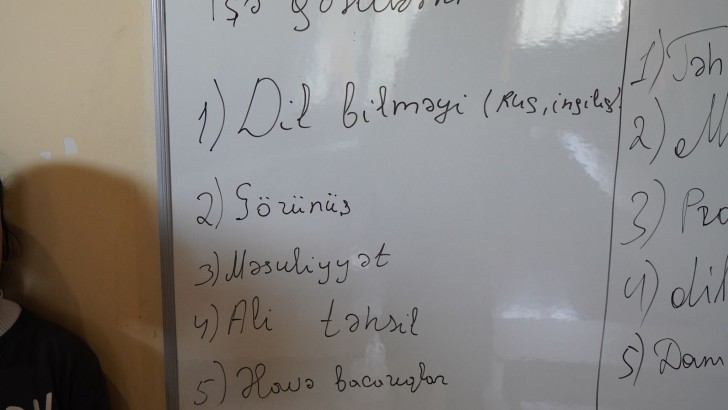 İşə
1) Dil bilməyi (Rus, ingilis)
2) Görünüş
3) Məsuliyyət
4) Ali təhsil
5) Əlavə bacarıqlar
1) Təh
2) M
3) Pro
4) dil
5) Dam